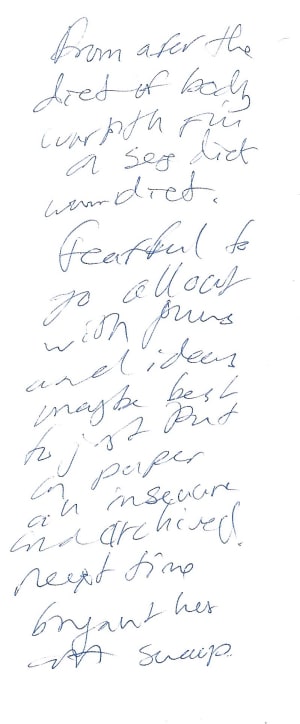 From afer the
diet of body
warmth
a seg diet
diet.
Fearful to
go all out
with
and ideas
maybe best
to just put
on paper
an insecure
and archived.
next time
bryant her
swap.